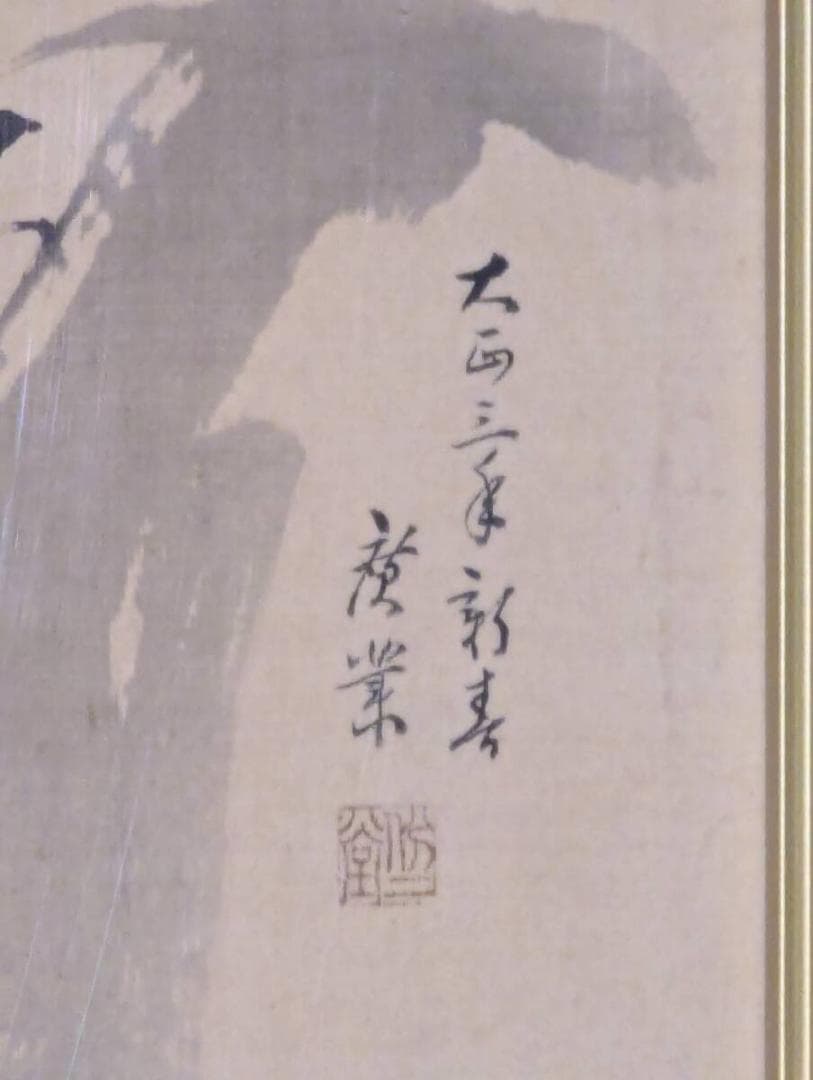 大正三年新春
廣業